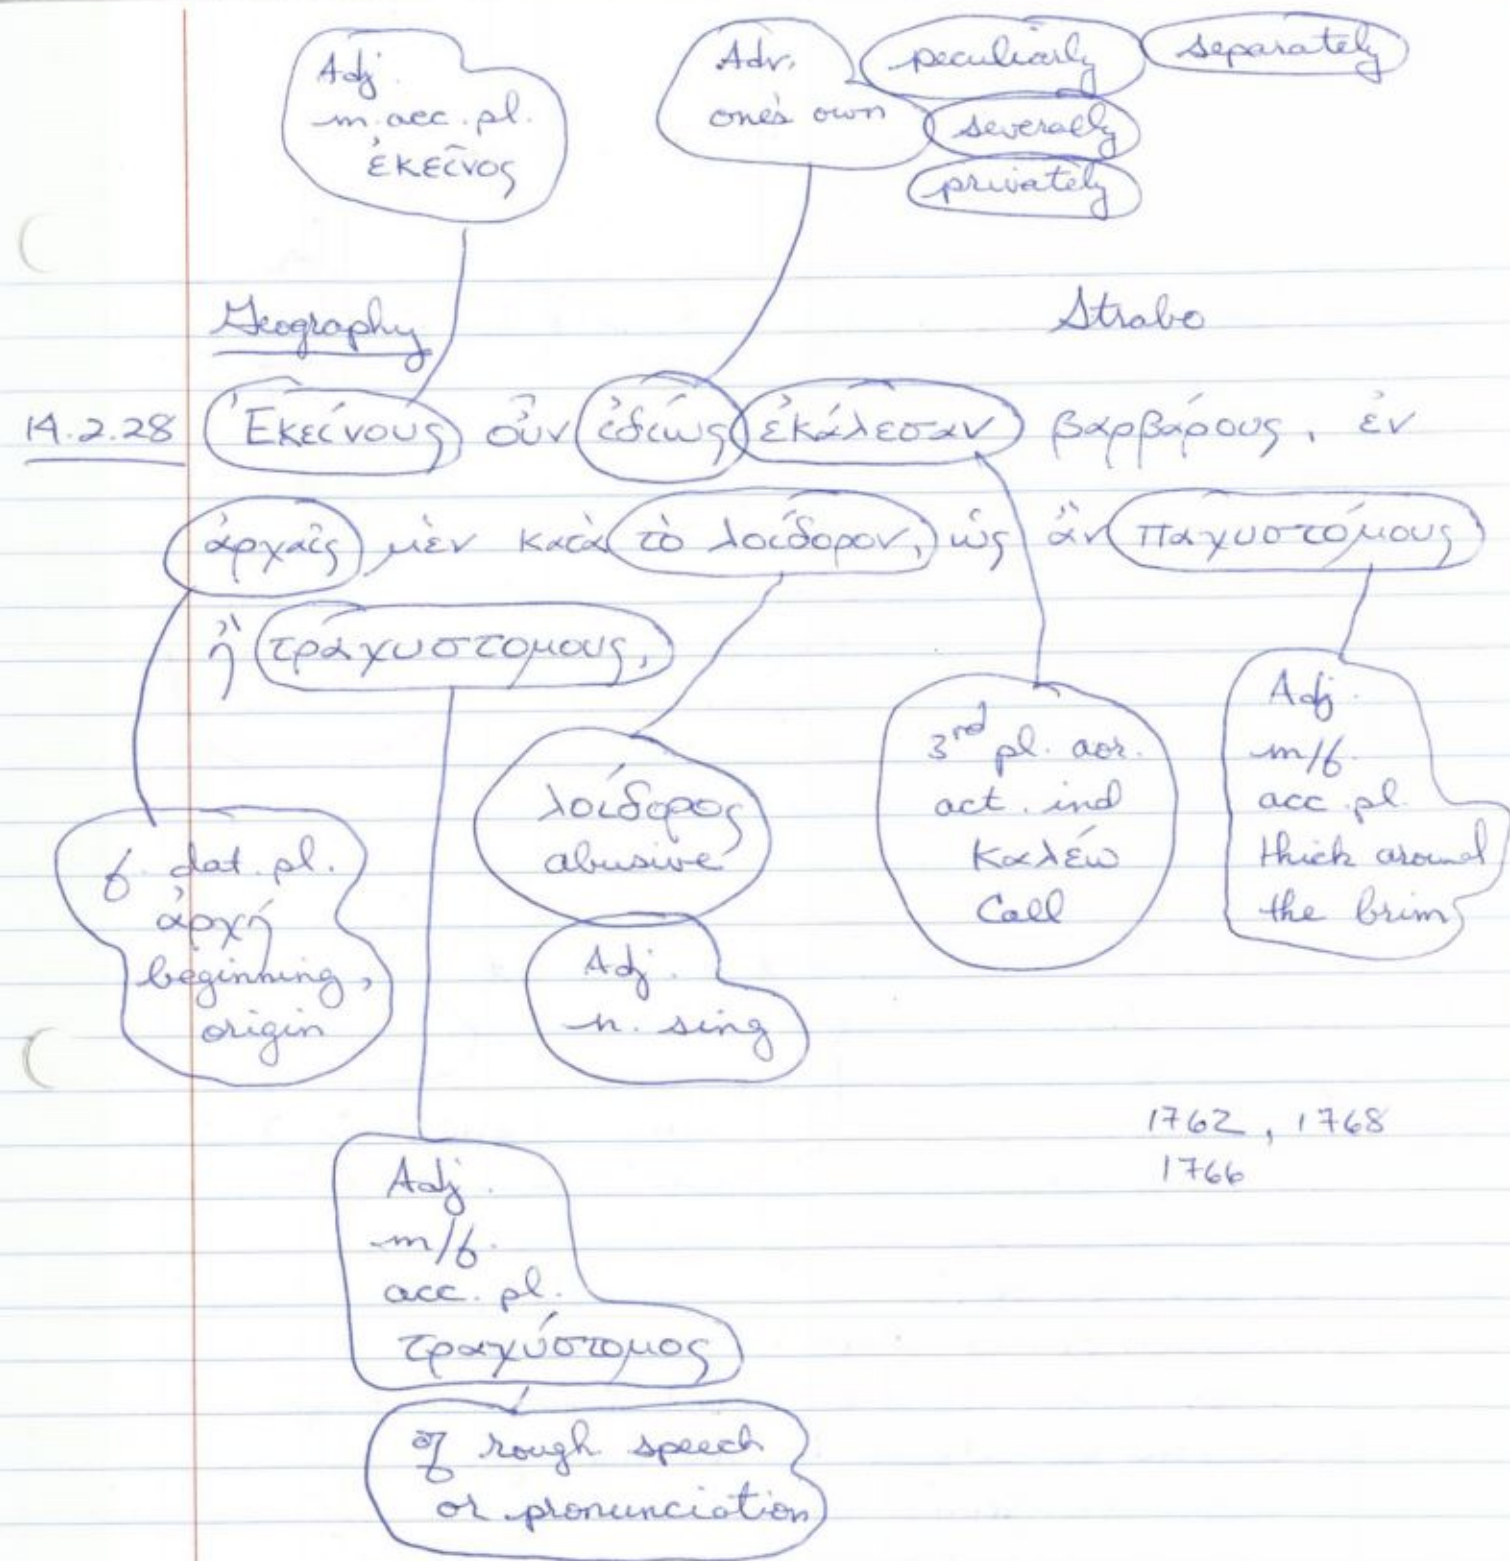 Adj.
m. acc. pl.
ἐκεῖνος
Adv.
one's own
peculiarly
separately
severally
privately
Geography
Strabo
14.2.28 Ἐκείνους οὖν ἰδίως ἐκάλεσαν βαρβάρους, ἐν
ἀρχαῖς μὲν κατὰ τὸ λοίδορον, ὡς ἂν παχυστόμους
ἢ τραχυστομους,
f. dat. pl.
ἀρχή
beginning,
origin
λοίδορος
abusive
Adj.
n. sing
3rd pl. aor.
act. ind
καλέω
Call
Adj.
m/f.
acc. pl.
thick around
the brim
1762, 1768
1766
Adj.
m/f.
acc. pl.
τραχύστομος
of rough speech
or pronunciation